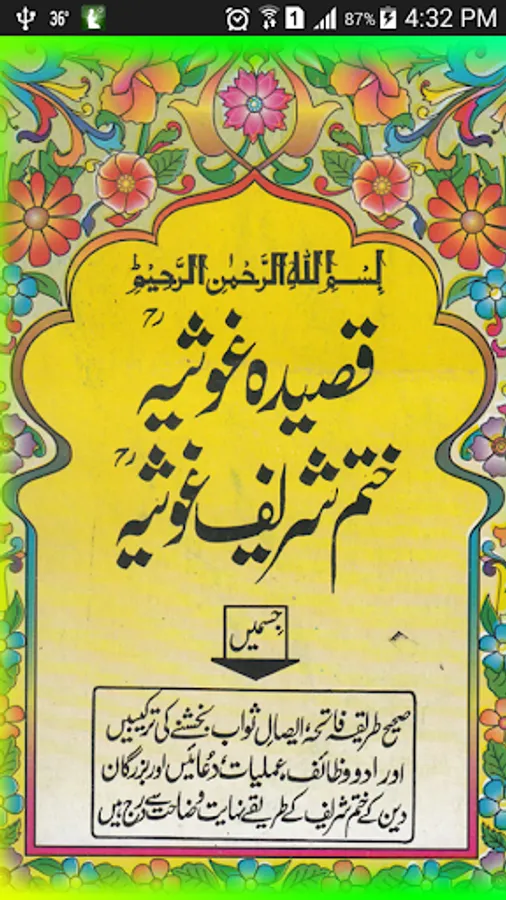 36° 1 87% 4:32 PM
بِسْمِ اللهِ الرَّحْمٰنِ الرَّحِيْمِ
قصیدہ غوثیہ رح
ختم شریف غوثیہ رح
جسمیں
صحیح طریقہ فاتحۂ ایصالِ ثواب بخشنے کی ترکیبیں
اوراد و وظائف، عملیات، دُعائیں اور بزرگان
دین کے ختم شریف کے طریقے نہایت وضاحت سے درج ہیں